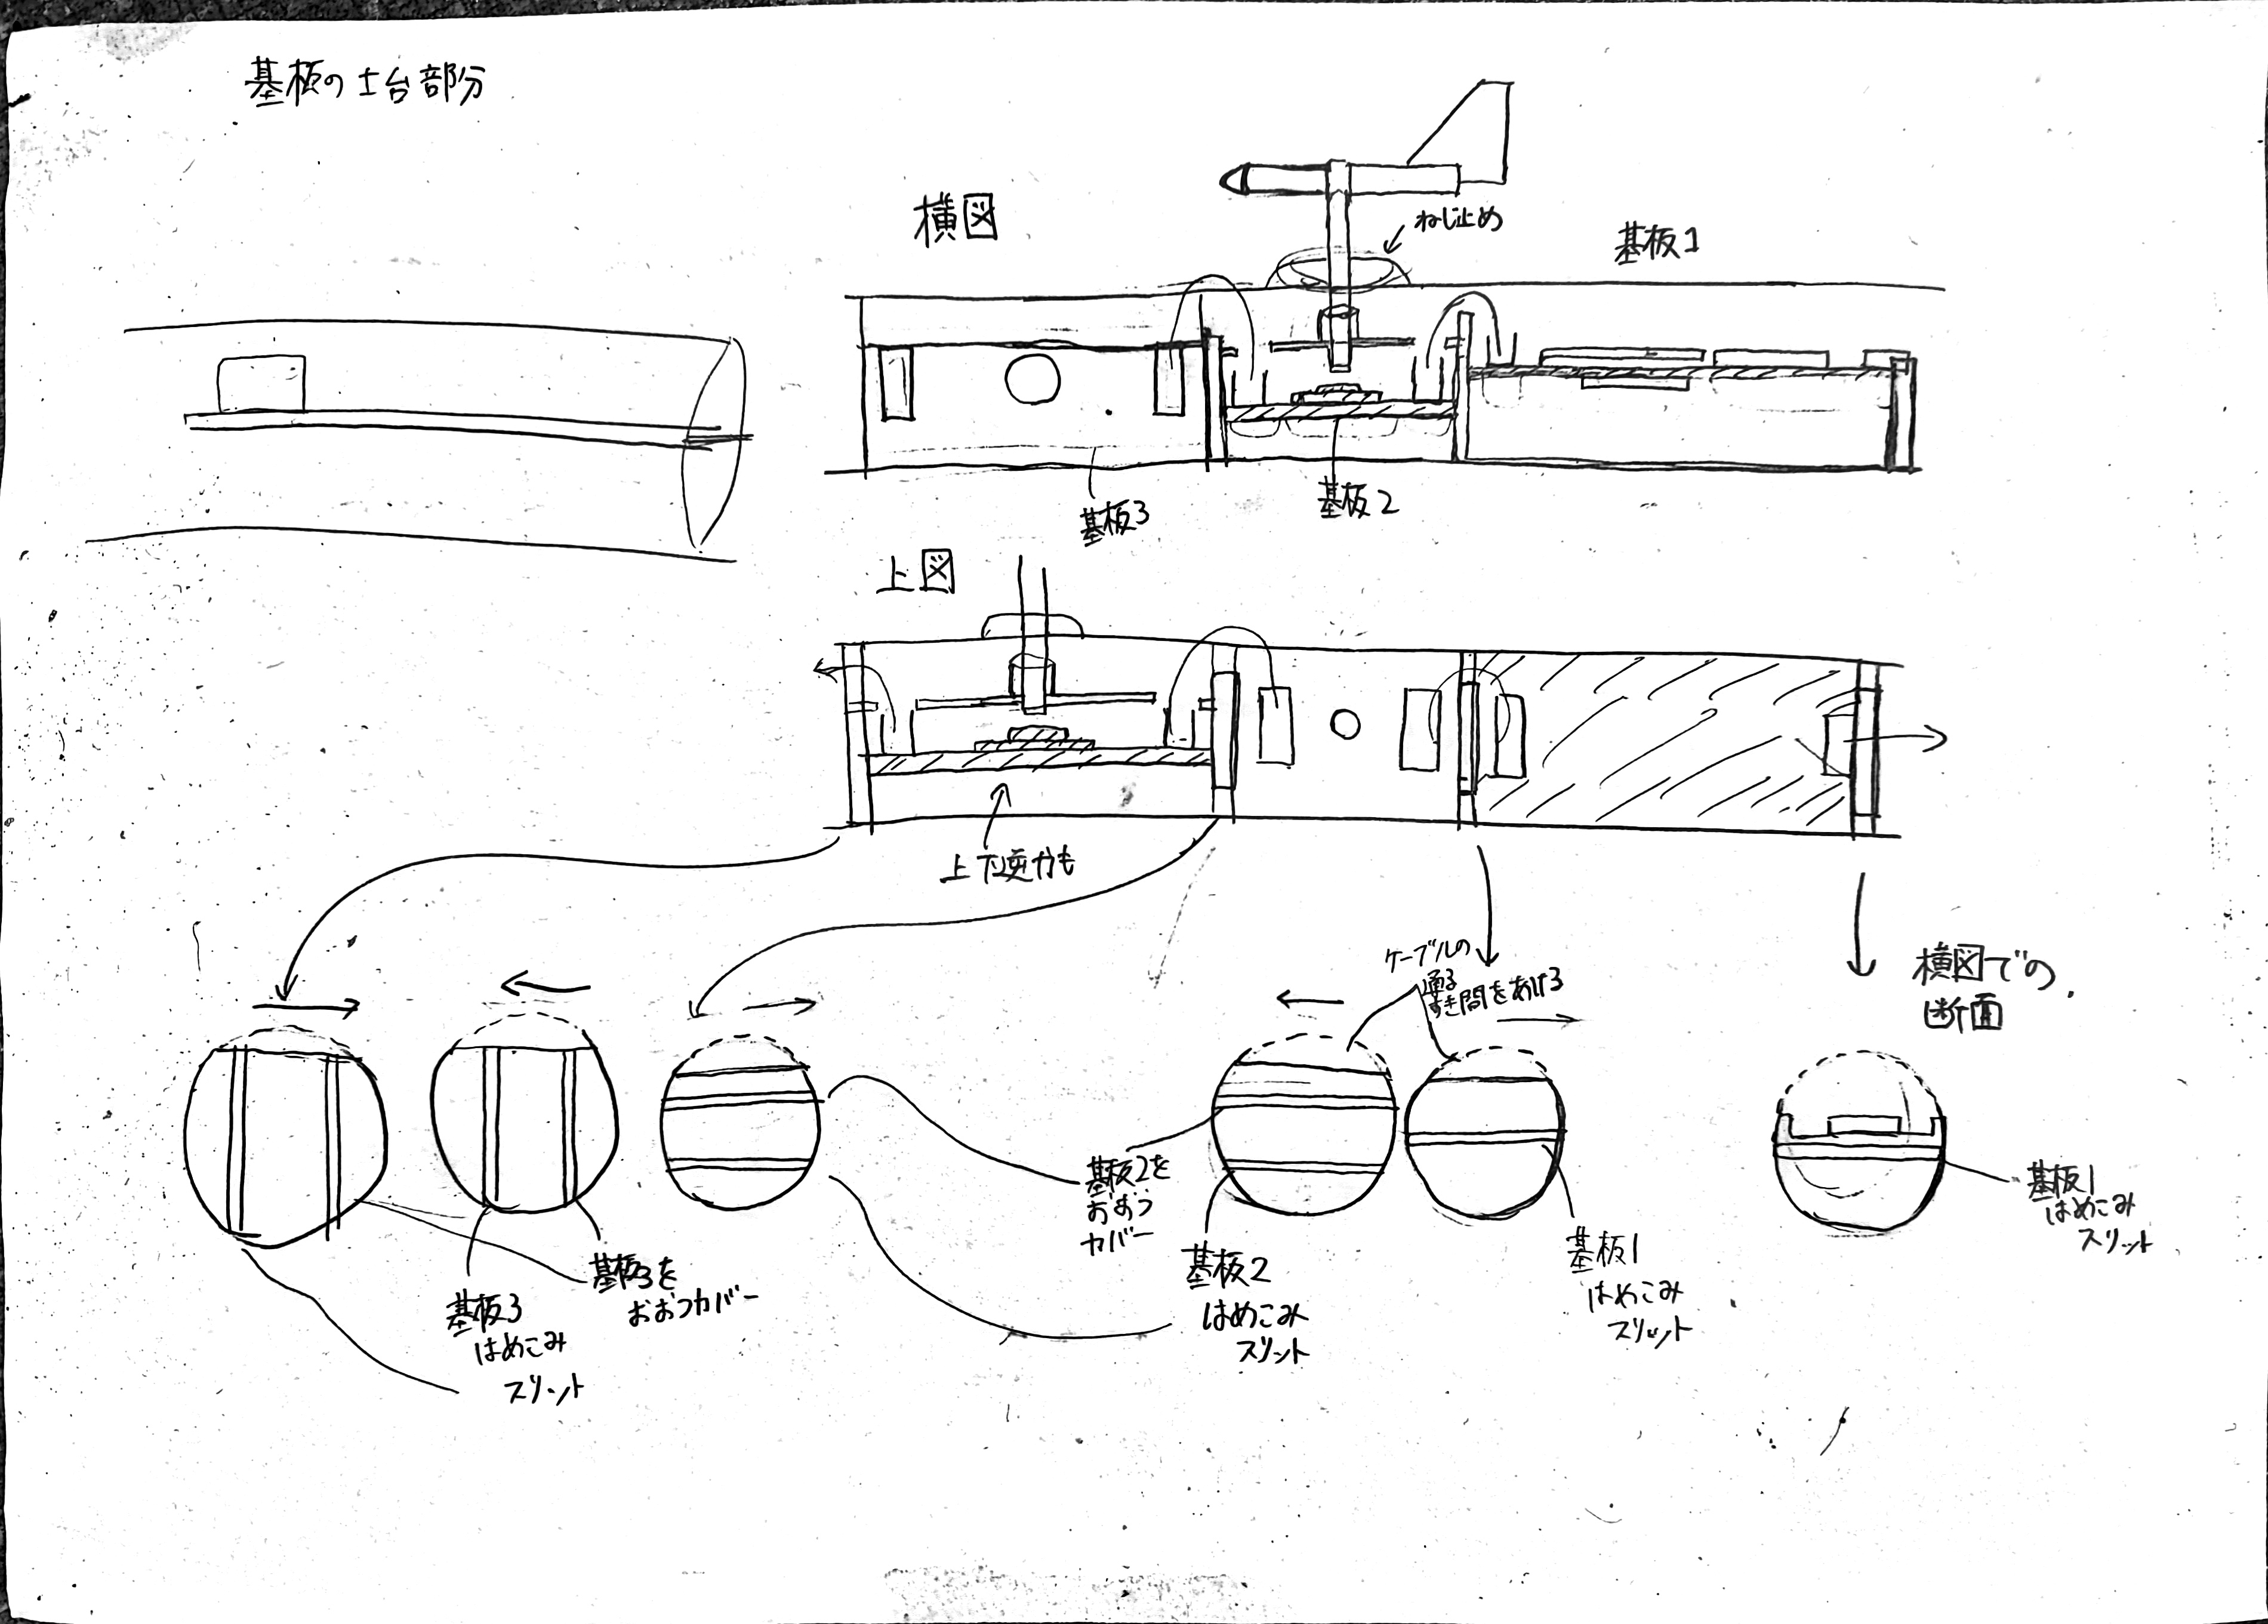 基板の土台部分
横図
ねじ止め
基板1
基板3
基板2
上図
上下逆かも
ケーブルの
通る
すき間をあける
横図での
断面
基板2を
おおう
カバー
基板1
はめこみ
スリット
基板2
はめこみ
スリット
基板1
はめこみ
スリット
基板3を
おおうカバー
基板3
はめこみ
スリット